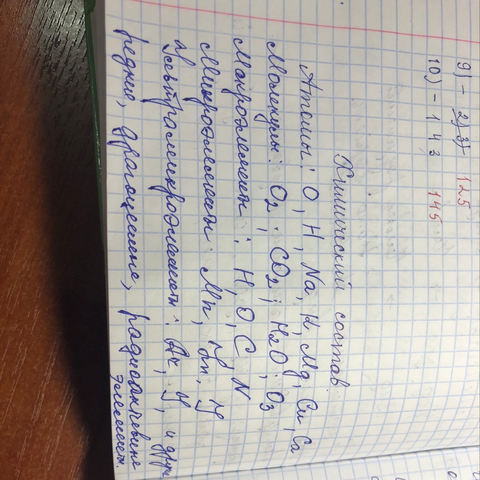 9) - 2) 3) 125
10) - 1 4 3 145
Химический состав
Атомы: O, H, Na, K, Mg, Cu, Ca
Молекулы: O2; CO2; H2O; O3
Макроэлементы: H, O, C N
Микроэлементы: Mn, Zn, J
Ультрамикроэлементы: и други
редкие, драгоценные, радиоактивные
элементы.